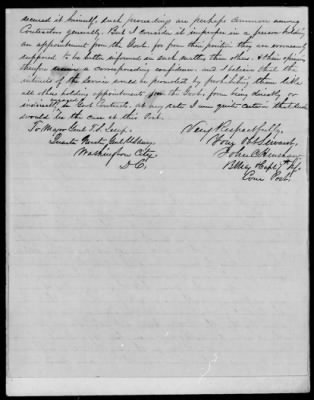 secured it himself, such proceedings are perhaps common among
Contractors generally. But I consider it improper in a person holding
an appointment from the Govt. for from this position they are necessarily
supposed to be better informed in such matters than others, & their opinions
therefore a corresponding confidence, and I believe that the
interests of the service would be promoted by prohibiting them like
all other holding appointment from the Govt, from being directly or
indirectly in Govt Contracts, at any rate I am quite certain that such
would be the case at this Post.
Very Respectfully,
To Major Genl T.S. Jesup. Your Obt Servant,
Quarter Master Genl U.S. Army, John C. Henshaw
Washington City, Bt Maj & Capt 7th Inf.
D.C. Com Post.